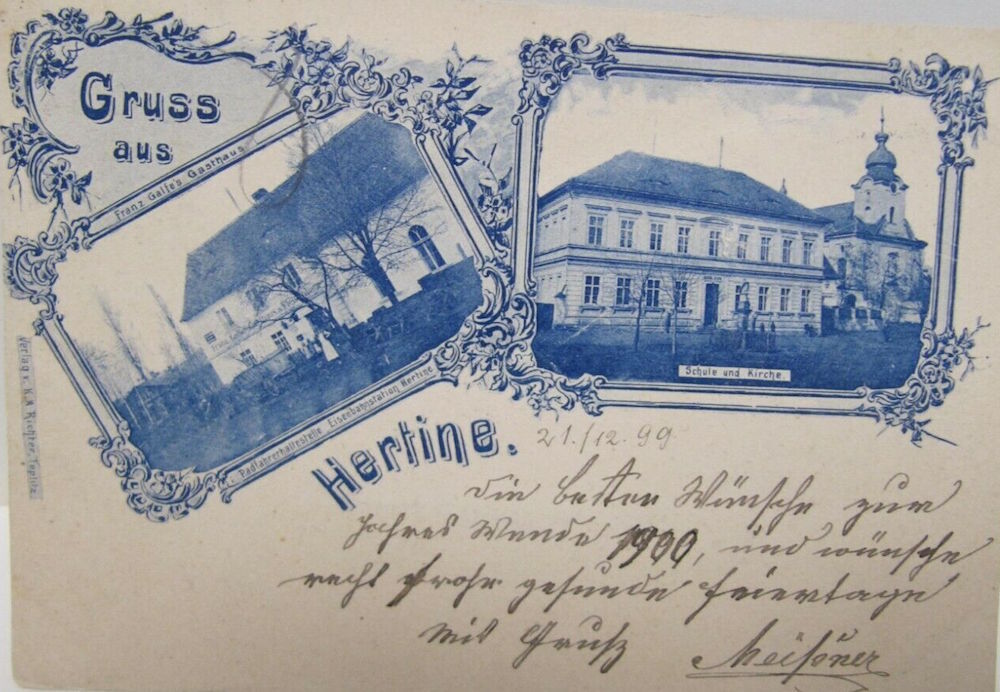 Gruss
aus
Franz Galle's Gasthaus
Radfahrerhaltestelle, Eisenbahnstation Hertine
Schule und Kirche.
Hertine.
Verlag v. R. Richter, Teplitz
21./12. 99
die besten Wünsche zur
Jahres Wende 1900, und wünsche
recht frohe gesunde Feiertage
mit Gruß Meißner